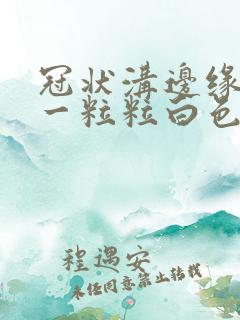 冠状溝邊缘
一粒粒白色
程遇安
未经同意禁止转载